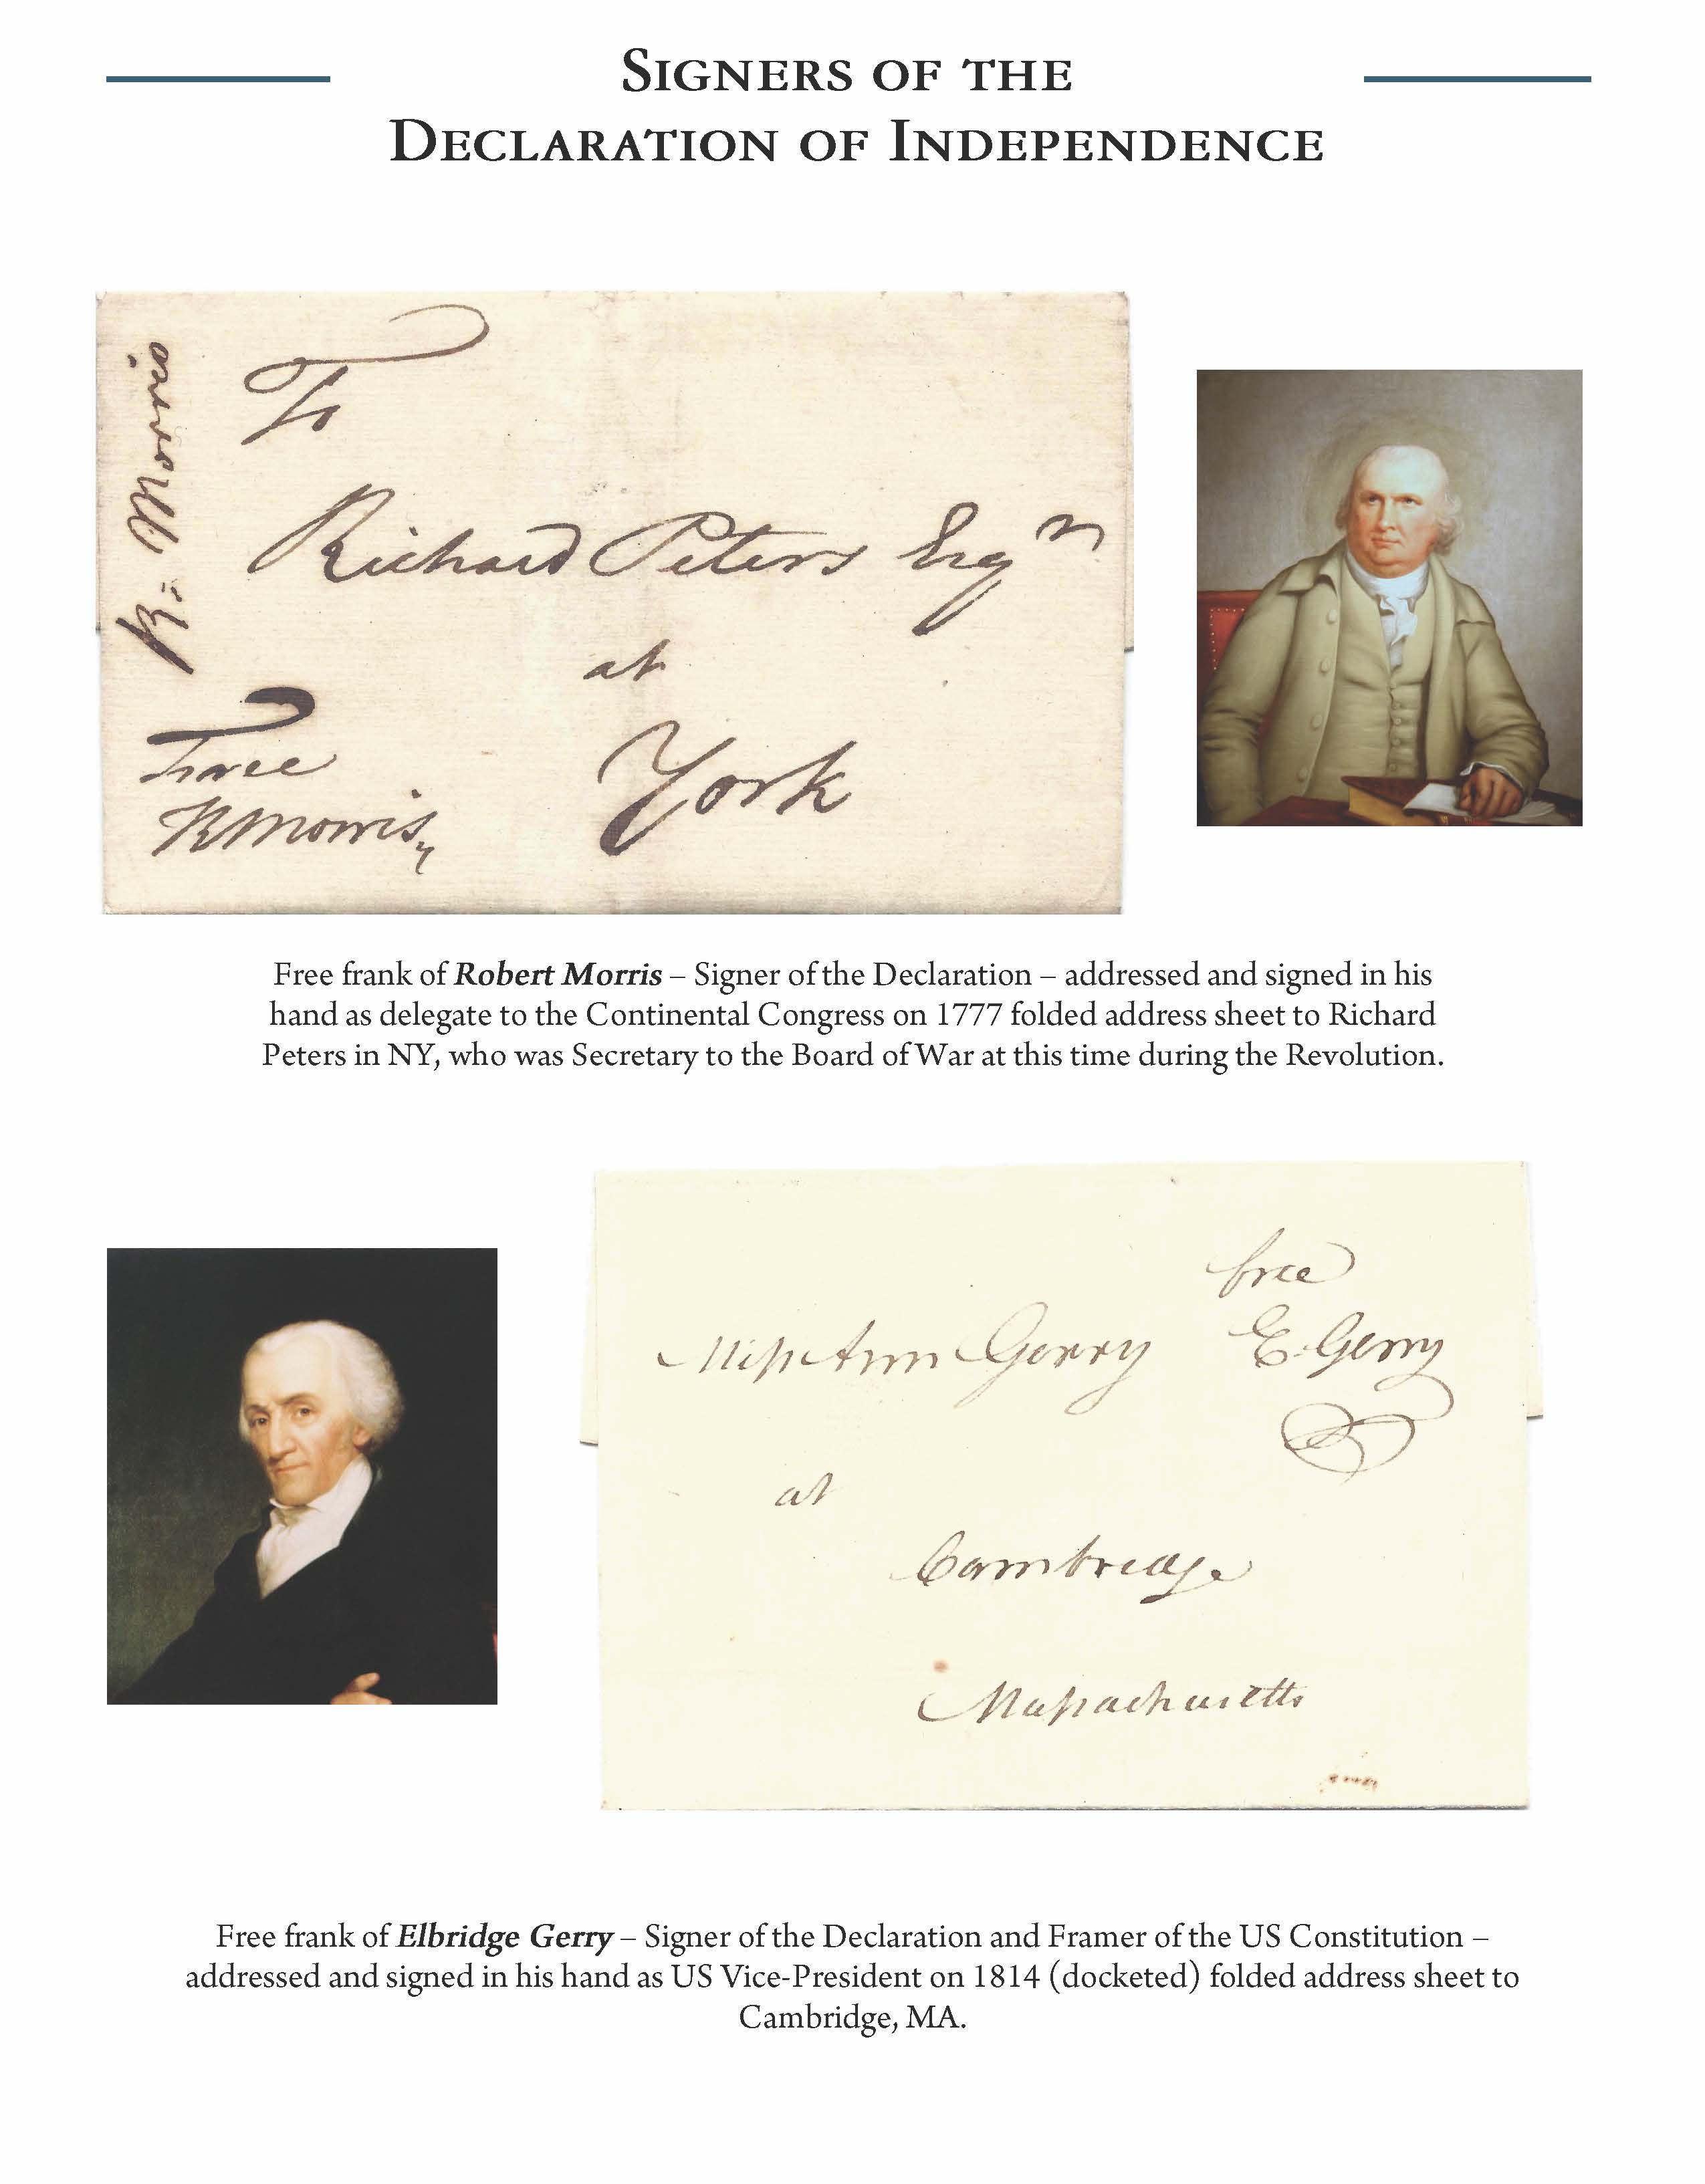 SIGNERS OF THE
DECLARATION OF INDEPENDENCE
To
Richard Peters Esqr
at
York
Free
RMorris
R. Morris
Free frank of Robert Morris – Signer of the Declaration – addressed and signed in his
hand as delegate to the Continental Congress on 1777 folded address sheet to Richard
Peters in NY, who was Secretary to the Board of War at this time during the Revolution.
free
Miss Ann Gerry E. Gerry
at
Cambridge
Massachusetts
Free frank of Elbridge Gerry – Signer of the Declaration and Framer of the US Constitution –
addressed and signed in his hand as US Vice-President on 1814 (docketed) folded address sheet to
Cambridge, MA.